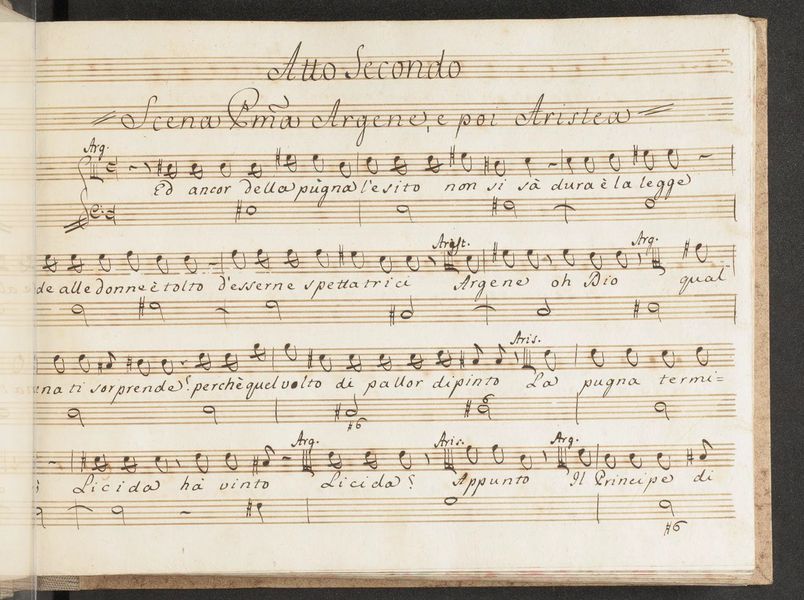 Atto Secondo
Scena Pma Argene, e poi Aristea
Arg.
Ed ancor della pugna l'esito non si sà dura è la legge
Arist. Arg.
de alle donne è tolto d'esserne spettatrici Argene oh Dio qual
Aris.
ti sorprende? perchè quel volto di pallor dipinto La pugna termi=
Arg. Aris. Arg.
Licida hà vinto Licida? Appunto Il Principe di